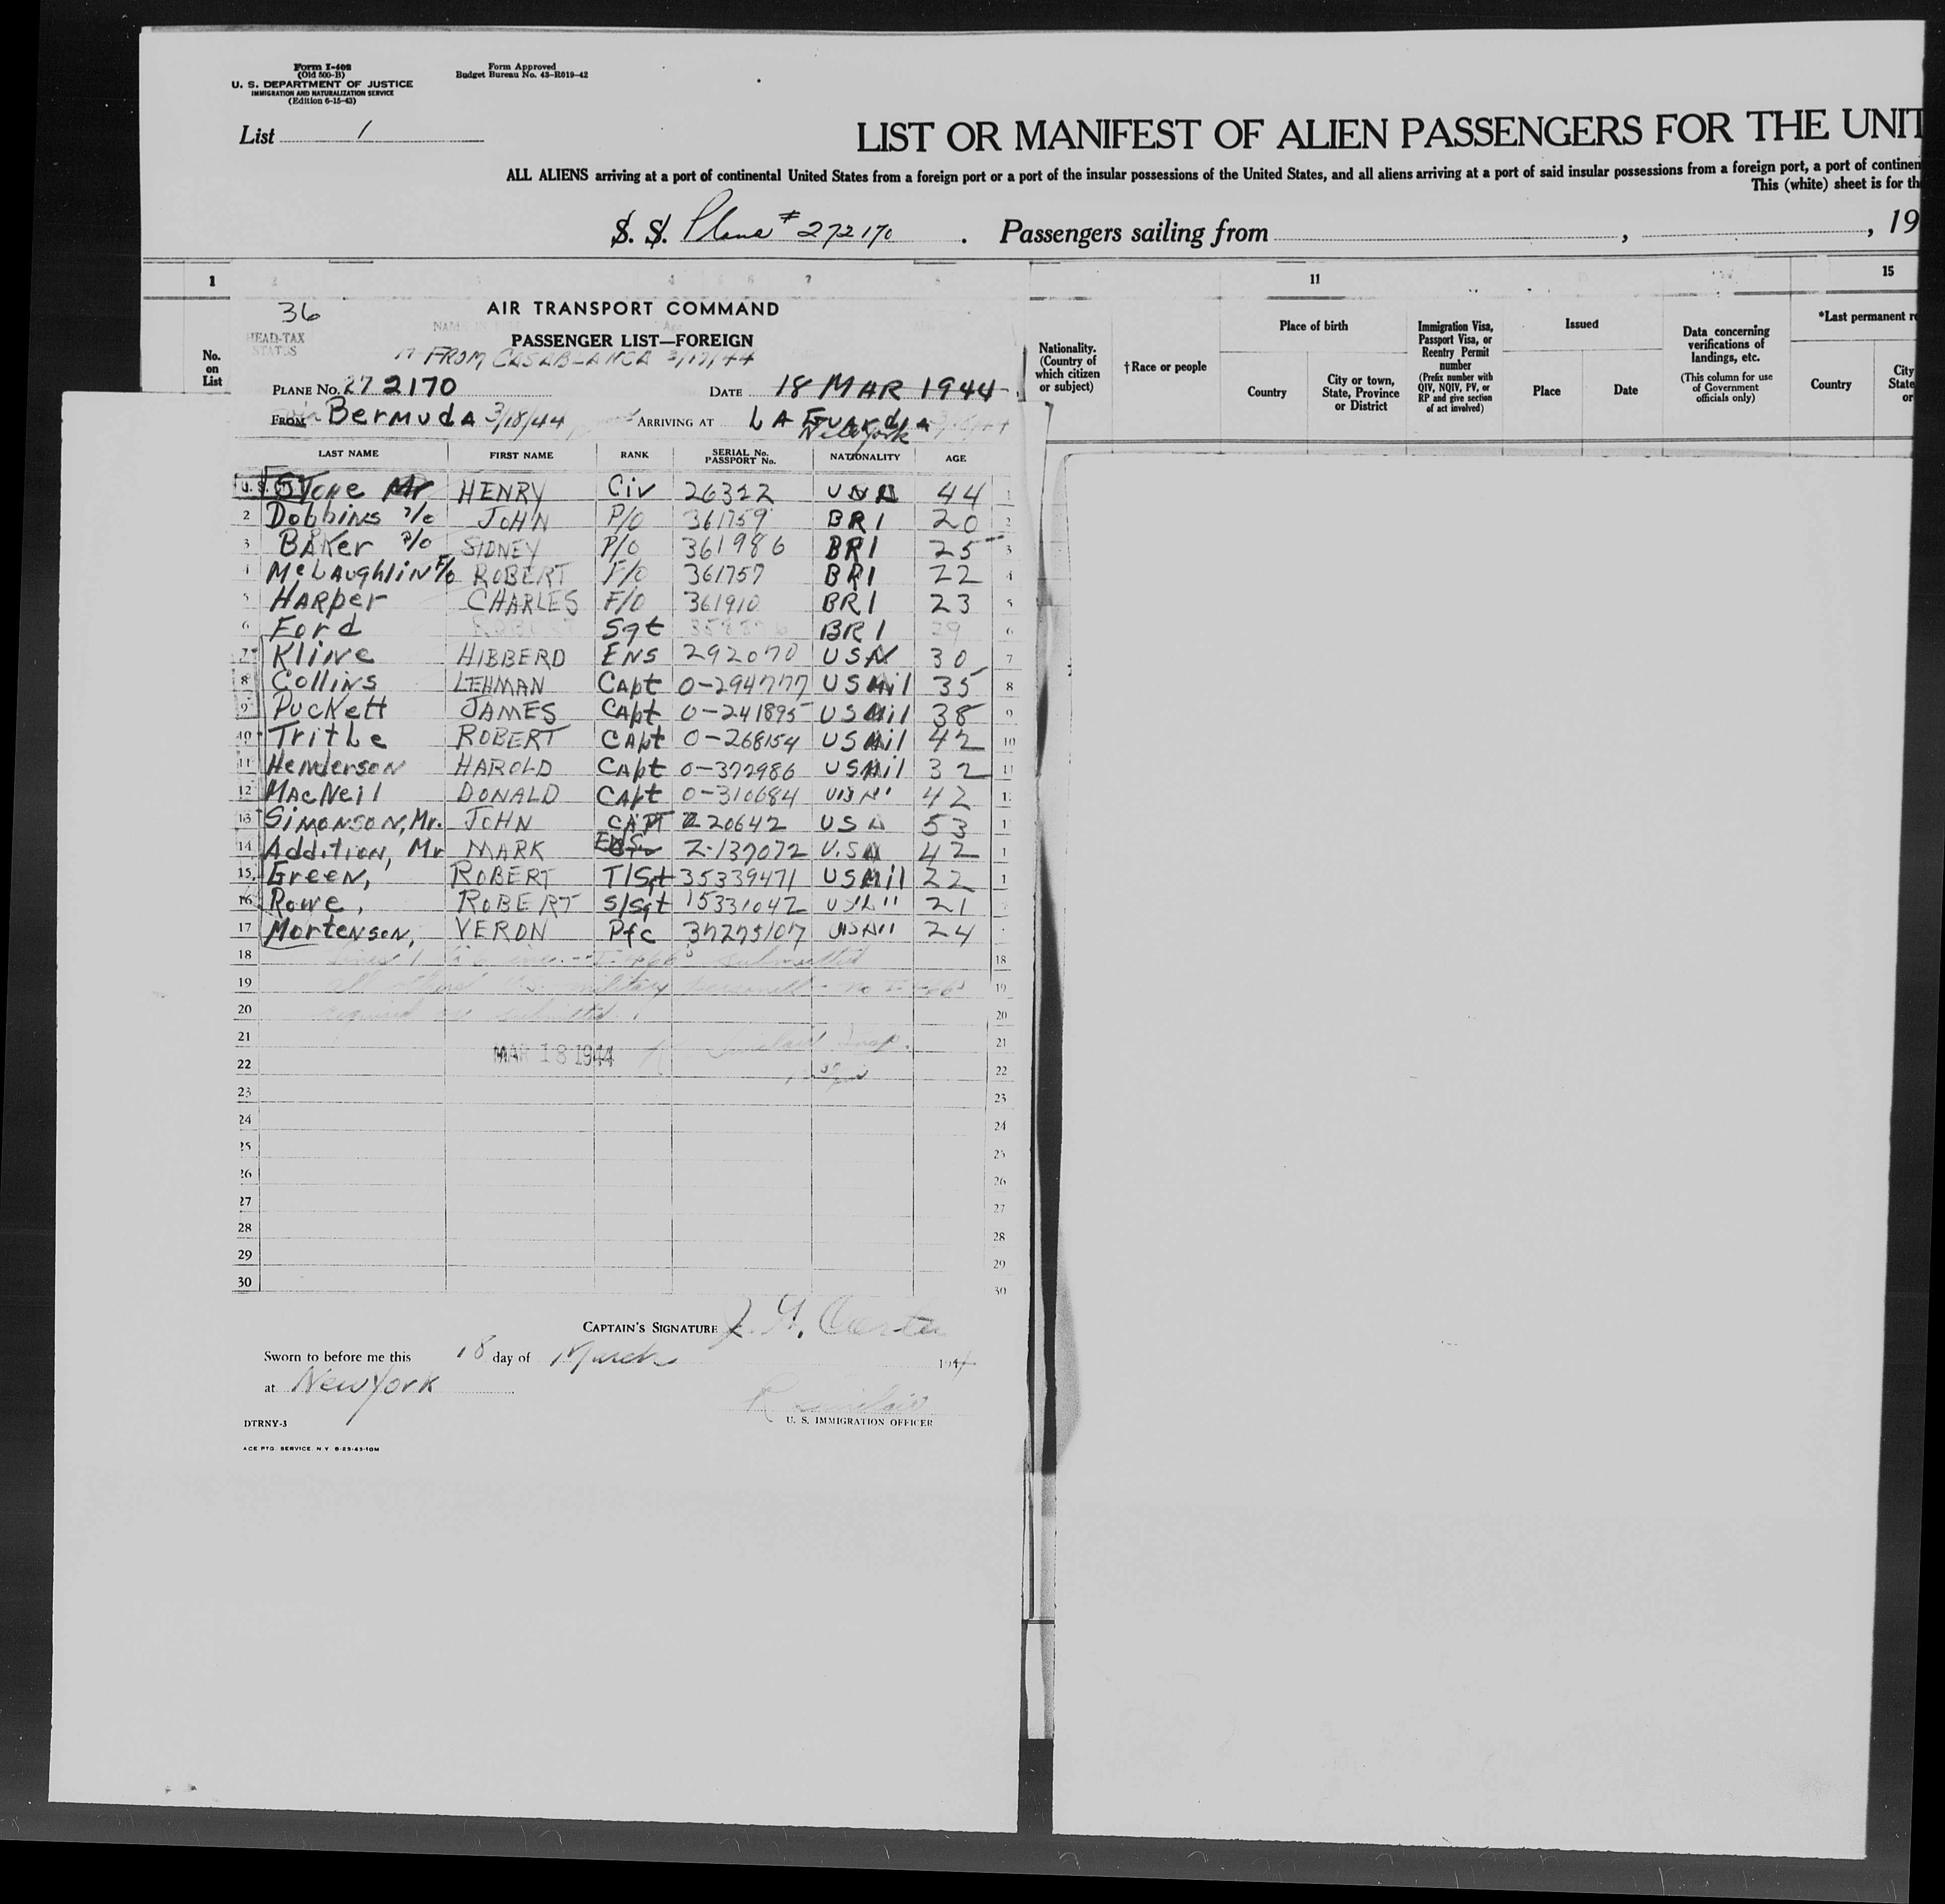 Form I-402
(Old 500-B)
U. S. DEPARTMENT OF JUSTICE
IMMIGRATION AND NATURALIZATION SERVICE
(Edition 6-15-43)
Form Approved
Budget Bureau No. 43-R019-42
List 1
LIST OR MANIFEST OF ALIEN PASSENGERS FOR THE UNIT
ALL ALIENS arriving at a port of continental United States from a foreign port or a port of the insular possessions of the United States, and all aliens arriving at a port of said insular possessions from a foreign port, a port of continen
This (white) sheet is for th
S. S. Plane # 272170 . Passengers sailing from , , 19
1 2 3 4 5 6 7 11 15
No. on List
HEAD-TAX STATUS
Nationality. (Country of which citizen or subject)
†Race or people
Place of birth
Country
City or town, State, Province or District
Immigration Visa, Passport Visa, or Reentry Permit number
(Prefix number with QIV, NQIV, PV, or RP and give section of act involved)
Issued
Place
Date
Data concerning verifications of landings, etc.
(This column for use of Government officials only)
*Last permanent r
Country
City
State
or
36
AIR TRANSPORT COMMAND
PASSENGER LIST—FOREIGN
FROM CASABLANCA 3/17/44
PLANE No. 272170 DATE 18 MAR 1944
FROM Bermuda 3/18/44 ARRIVING AT LA Guardia
New York
LAST NAME FIRST NAME RANK SERIAL No. PASSPORT No. NATIONALITY AGE
Stone Mr HENRY Civ 26322 44 1
2 Dobbins JOHN P/O 361759 BRI 20 2
3 BAKer P/O SIDNEY P/O 361986 BRI 25 3
McLaughlin F/o ROBERT F/O 361757 BRI 22 4
5 HARper CHARLES F/O 361910 BRI 23 5
6 Ford Sgt BRI 6
7 Kline HIBBERD ENS 292070 USN 30 7
8 Collins LEHMAN Capt 0-294777 US Mil 35 8
9 Puckett JAMES Capt 0-241895 US Mil 38 9
10 Tritle ROBERT Capt 0-268154 US Mil 42 10
11 Henderson HAROLD Capt 0-372986 US Mil 32 11
12 MacNeil DONALD Capt 0-310684 42
13 SIMONSON, Mr. JOHN CAPT 20642 53
14 Addition, Mr MARK ENS Z-137072 42
15 Green, ROBERT T/Sgt 35339471 US Mil 22
16 Rowe, ROBERT S/Sgt 15331042 21
17 Mortenson, VERON Pfc 37275107 24
18 submitted 18
19 all others U.S. military 19
20 submitted. 20
21 21
22 MAR 18 1944 22
23 23
24 24
25 25
26 26
27 27
28 28
29 29
30 30
CAPTAIN'S SIGNATURE
Sworn to before me this 18 day of March 1944
at New York
U. S. IMMIGRATION OFFICER
DTRNY-3
ACE PTG. SERVICE. N.Y. 6-25-43-10M